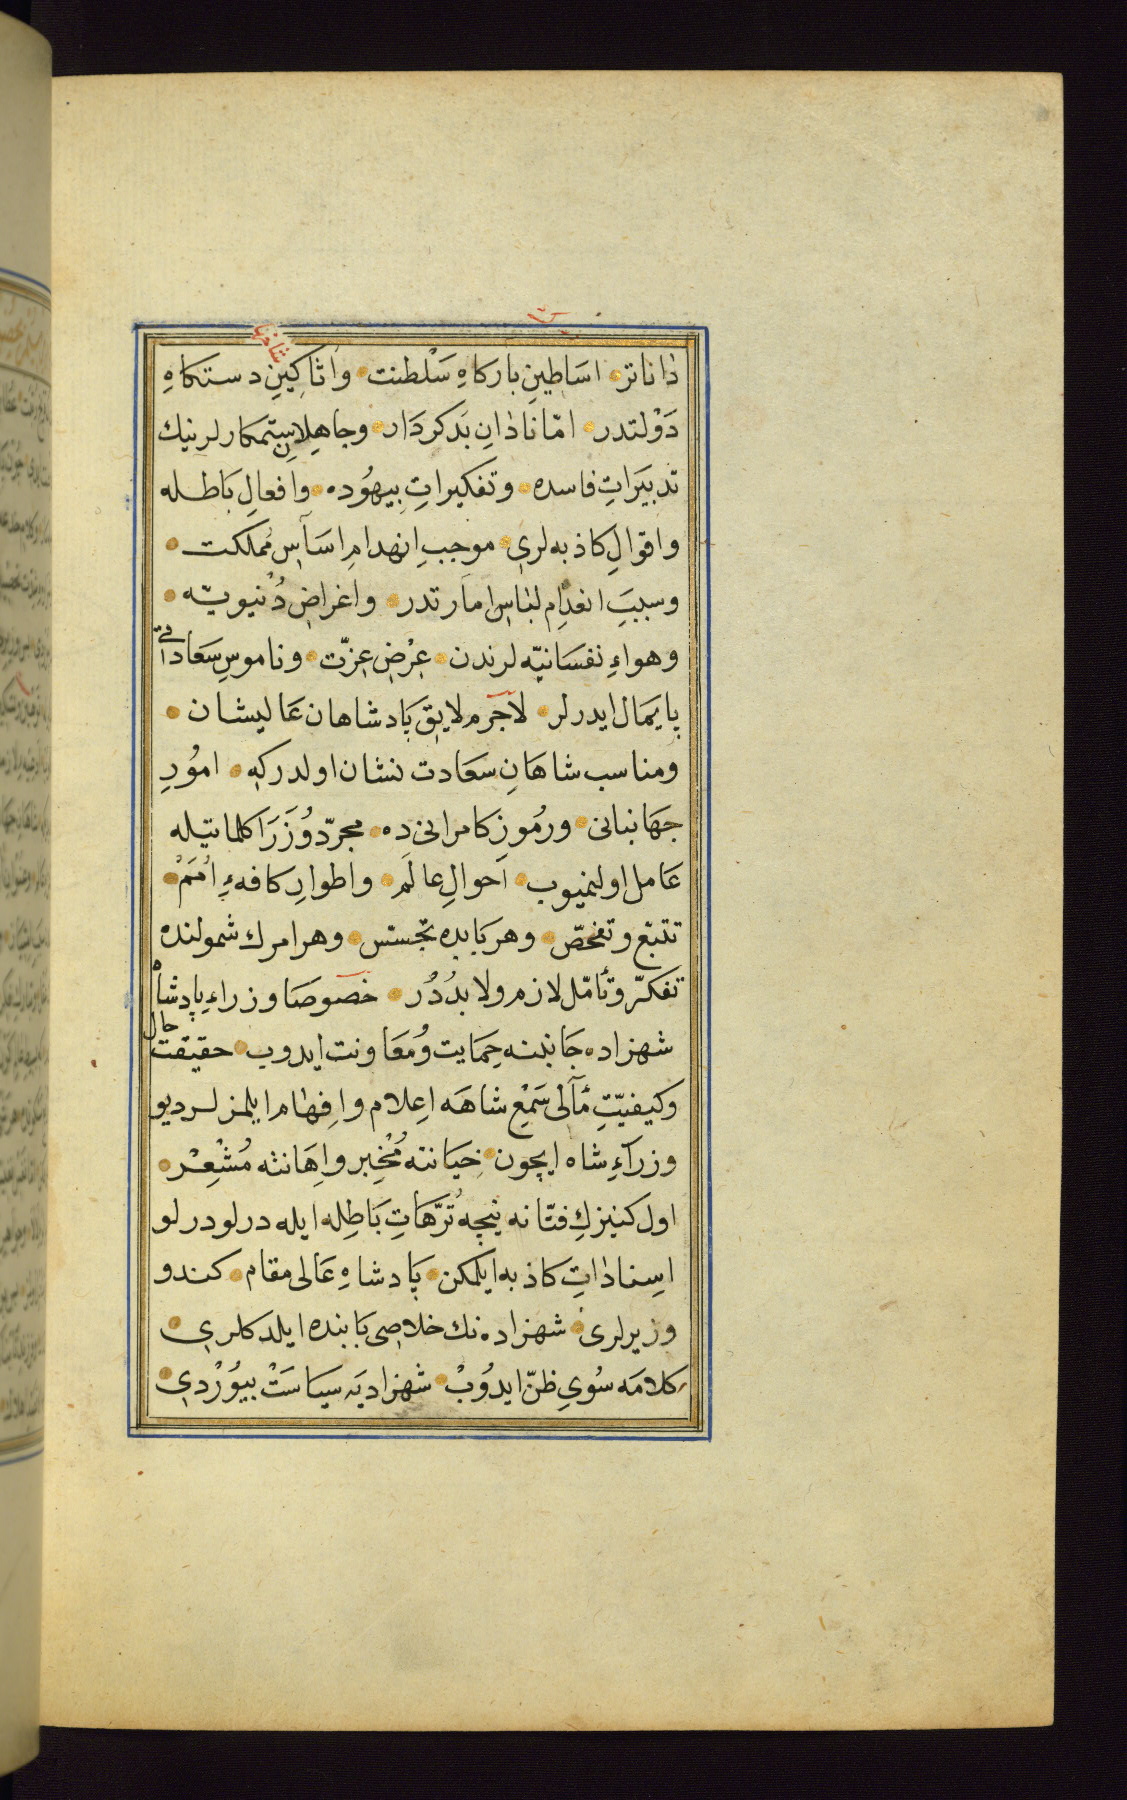 داناتر اسَاطينِ باركاهِ سَلْطنت واثاكينِ دستكاهِ
دَوْلتدر امّا نادانِ بَدكردَار وجاهِلانِ ستمكارلرنيك
تدبيَراتِ فاسده وتفكيراتِ بيهوُده وافعالِ بَاطله
واقوالِ كاذبه لرى موجبِ انهدامِ اسَاسِ مملكت
وسببِ انعدامِ لباسِ امارتدر واغراضِ دُنيويّه
وهواءِ نفسَانيّه لرندن عِرْضِ عِزّت وناموسِ سَعاداتى
پايمال ايدرلر لاجَرم لايقِ پَادشاهان عَاليشان
ومناسب شاهَانِ سعَادت نشان اولدركه امُورِ
جهَانبانى ورمُوزِ كامرانى ده مجرّد وُزَرَا كلماتيله
عَامل اولنميوب اَحوالِ عالَم واطوارِ كافهءِ امُمَ
تتبّع وتفحّص وهر بَابده تجسّس وهر امرك شمولنده
تفكرّ وتأمّل لازم ولابدُدُر خصوصَا وزراءِ پادشاه
شهزاده جَانبنه حِمَايت ومُعَاونت ايدوب حقيقت حال
وكيفيّتِ مآلى سَمْعِ شاهَه اِعلام واِفهام ايلمزلرديو
وزرآءِ شاه ايچون خيَانته مُخْبِر واِهَانته مُشْعِرْ
اول كنيزكِ فتّانه نيجه تُرَّهَاتِ بَاطِله ايله درلو درلو
اسِناداتِ كاذبه ايلمكن پادشاهِ عَالى مقام كندو
وزيرلرى شهزاده نك خلاصى بَابنده ايلدكلرى
كلامَه سُوىِ ظنّ ايدوُبْ شهزاديَه سيَاسَتْ بيوُرْدى